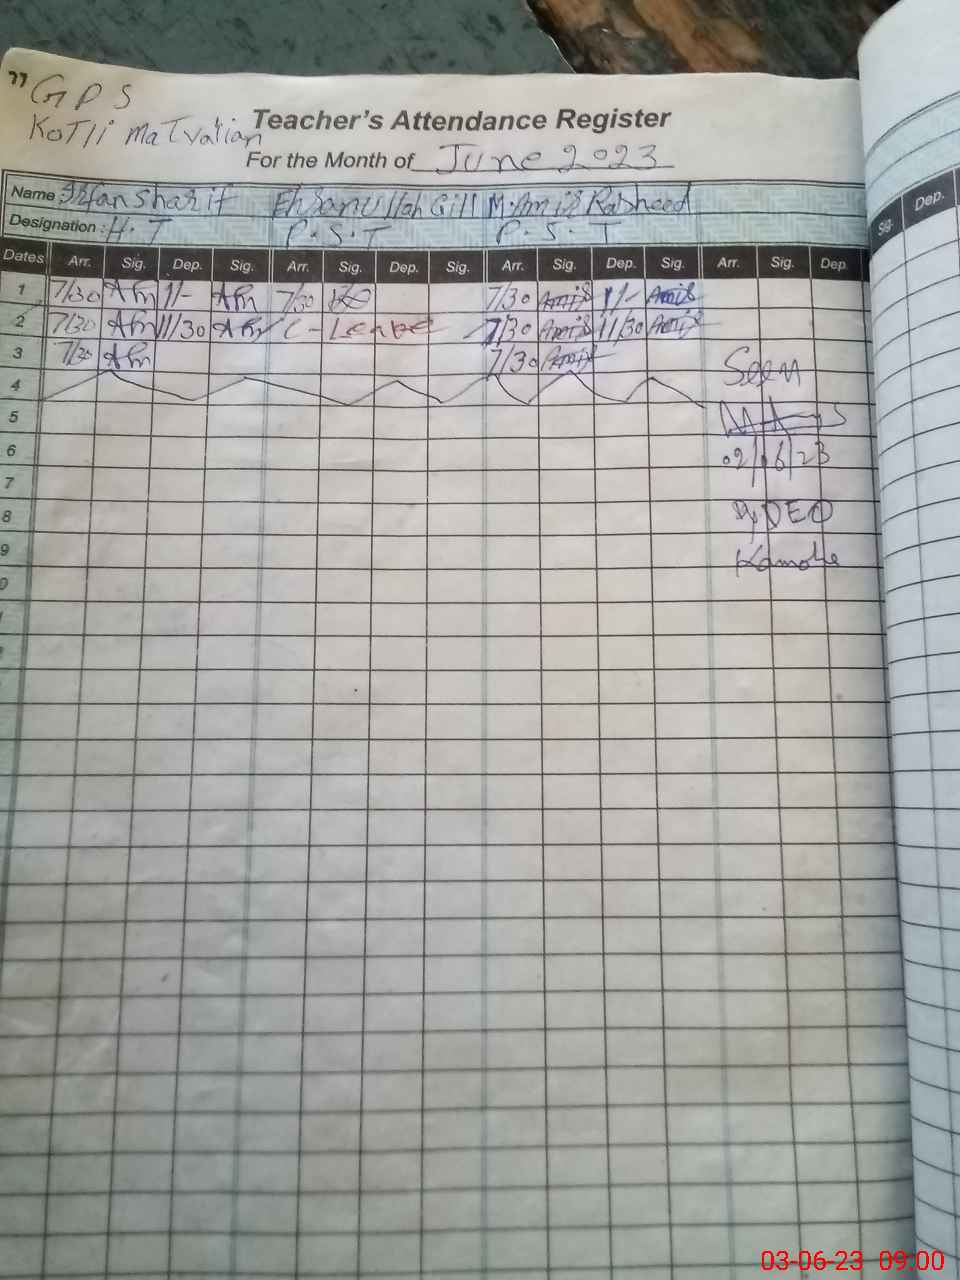 "
GPS
Kotli Matvalian
Teacher's Attendance Register
For the Month of June 2023
Name : Irfan Sharif Ehsanullah Gill M. Amir Rasheed
Designation : H.T P.S.T P.S.T
Dates Arr. Sig. Dep. Sig. Arr. Sig. Dep. Sig. Arr. Sig. Dep. Sig. Arr. Sig. Dep.
1 7/30 1/- 7/30 7/30 Amir 1/- Amir
2 7/30 11/30 C-Leave 7/30 Amir 11/30 Amir
3 7/30 7/30 Amir
4
5
6
7
8
9
0
Seen
02/06/23
Dy DEO
Kamoke
Sig. Dep.
03-06-23 09:00